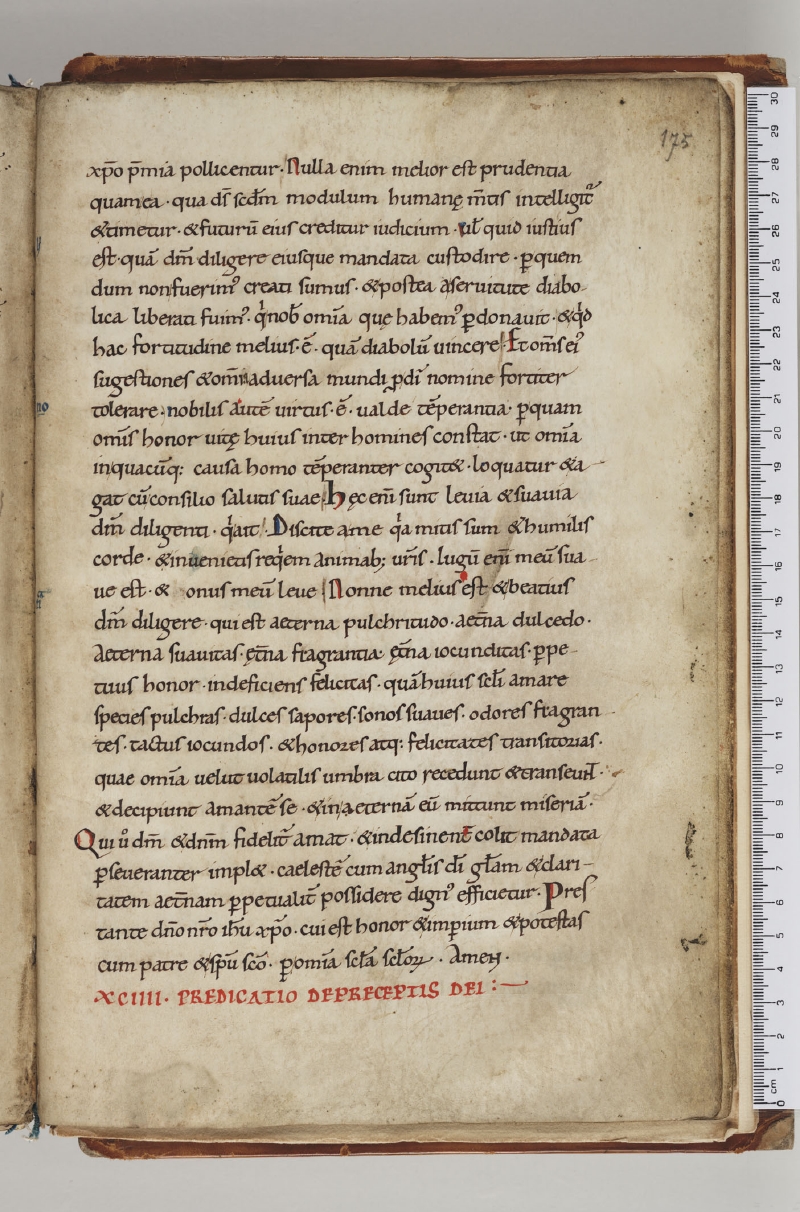 175
xp̄o p̄mia pollicentur. Nulla enim melior est prudentia
quam ea. qua ds̄ scdm̄ modulum humanę m̄tis intelligit̄
& timetur. & futurū eius creditur iudicium. ul̄ quid iustius
est. quā dm̄ diligere eiusque mandata custodire. ꝑ quem
dum non fuerim᾽ creati sumus. & postea a seruitute diabo-
lica liberati fuim᾽. qͥ nob̄ omīa que habem᾽ ꝑdonauit. & qͥd
hac fortitudine melius. ē. quā diabolū uincere. Et om̄s ei᾽
sugestiones & om̄ia aduersa mundi ꝓ dī nomine fortiter
tolerare. nobilis autē uirtus. ē. ualde tēperantia. ꝑ quam
omīs honor uitę huius inter homines constat. ut omīa
in quacūq: causa homo tēperanter cogit&. loquatur & a-
gat cū consilio salutis suae. hęc enī sunt leuia & suauia
dm̄ diligenti. qͥ ait. Discite a me qͥa mitis sum & humilis
corde. & inuenietis reqͥem animab; ur̄is. Iugū enī meū sua-
ue est. & onus meū leue. Nonne melius est & beatius
dm̄ diligere. qui est aeterna pulchritudo. aet̄na dulcedo.
Aeterna suauitas. ęt̄na fragrantia. ęt̄na iocunditas. ꝑpe-
tuus honor. indeficiens felicitas. quā huius scl̄i amare
species pulchras. dulces sapores. sonos suaues. odores fragran
tes. tactus iocundos. & honores atq: felicitates transitorias.
quae omīa uelut uolatilis umbra cito recedunt & transeunt.
& decipiunt amantē se. & in aeternā eū mittunt miseriā.
Qui ů dm̄ & dnm̄ fidelit̄ amat. & indesinent̄ colit mandata
ꝑseueranter impl&. caelestē cum angl̄is dī gl̄am & clari-
tatem aet̄nam ꝑpetualit̄ possidere dign᾽ efficietur. Pres
tante dn̄o nr̄o ih̄u xp̄o. cui est honor & imperium & potestas
cum patre & sp̄u scō. ꝑ omīa scl̄a scl̄oꝝ. Amen.
XCIIII. PREDICATIO DE PRECEPTIS DEI :—